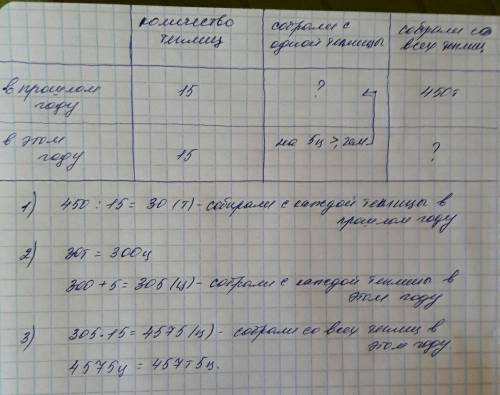 количество теплиц | собрали с одной теплицы | собрали со всех теплиц
в прошлом году | 15 | ? | 450т
в этом году | 15 | на 5ц >, чем | ?
1) 450 : 15 = 30 (т) - собирали с каждой теплицы в
прошлом году
2) 30т = 300ц
300 + 5 = 305 (ц) - собрали с каждой теплицы в
этом году
3) 305 · 15 = 4575 (ц) - собрали со всех теплиц в
этом году
4575ц = 457т5ц.